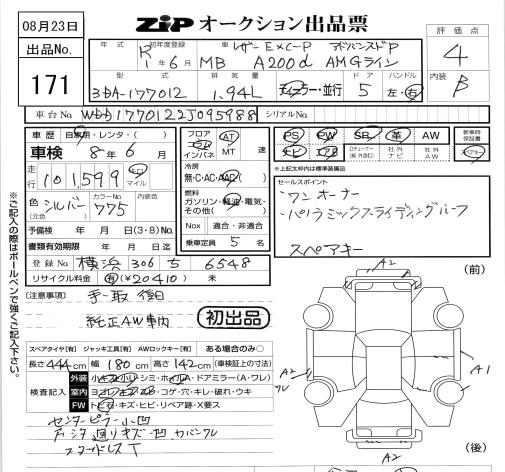 08月23日
ZIP オークション出品票
評価点
4
内装
B
出品No.
171
年式 初年度登録 車名
R1年6月 MB A200d AMGライン
レザーEXC-P アドバンスドP
型式 排気量 ドア ハンドル
3DA-177012 1.94L ディーラー・並行 5 左・右
車台No. WDD1770122J095988 シリアルNo.
車歴 自家用・レンタ( )
車検 8年6月
走行 101,599 キロ マイル
色(元色) シルバー カラーNo. 775 内装色
予備検 年 月 日(3・8)No.
書類有効期限 年 月 日迄
登録No. 横浜 306 ち 6548
リサイクル料金 有(¥20410) 未
フロア コラム インパネ AT MT 速
冷房 無・C・AC・AAC( )
燃料 ガソリン・軽油・電気・その他( )
Nox 適合・非適合
乗車定員 5 名
PS PW SR 革 AW
ナビ エアB 社外ナビ 社外AW
新車時保証書
スペアキー
※上記太枠内は標準装備品
セールスポイント
・ワンオーナー
・パノラミックスライディングルーフ
スペアキー
(注意事項) 手・取 後日
純正AW車内
初出品
スペアタイヤ[有] ジャッキ工具[有] AWロックキー[有] ある場合のみ○
長さ444cm 幅180cm 高さ142cm (車検証上の寸法)
検査記入
外装 小キズ・小凹・シミ・ホイール・ドアミラー(A・ワレ)
室内 ヨゴレ・キズ・スレ・コゲ・穴・キレ・破れ・ウキ
FW トビ石・キズ・ヒビ・リペア跡・X要ス
センターピラー小凹
スタッドレスT
※ご記入の際はボールペンで強くご記入下さい。
(前)
A2
A2
A2
ワレ
A1
A2
(後)